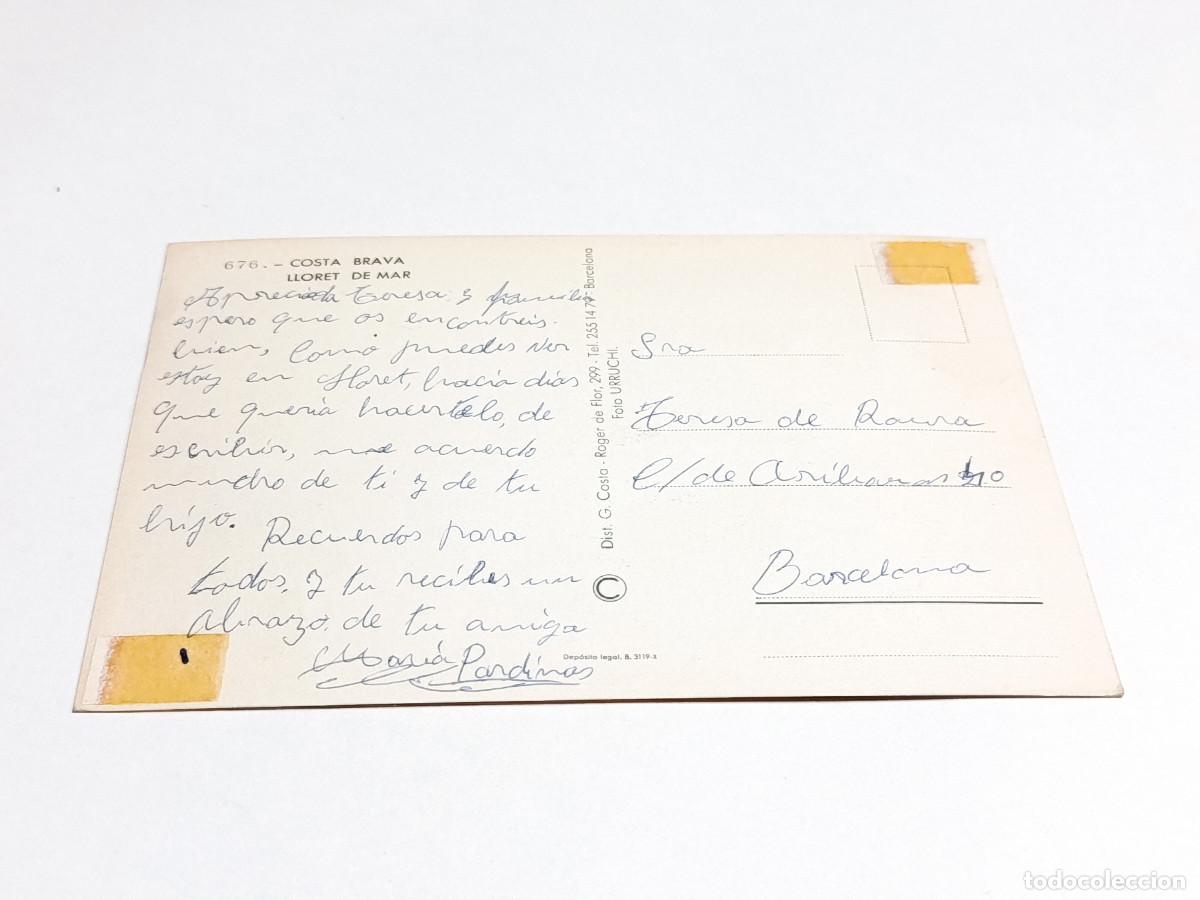 676. - COSTA BRAVA
LLORET DE MAR
Apreciada Teresa y familia
espero que os encontreis
bien, Como puedes ver
estoy en Lloret, hacia dias
que queria hacertelo, de
escribir, me acuerdo
mucho de ti y de tu
hijo. Recuerdos para
todos, y tu recibes un
abrazo de tu amiga
Maria Pardinas
Dist. G. Costa - Roger de Flor, 299 - Tel. 255 14 79 - Barcelona
Foto URRUCHI.
C
Depósito legal. B. 3119-X
Sra
Teresa de Roura
C/ de
Barcelona
todocoleccion